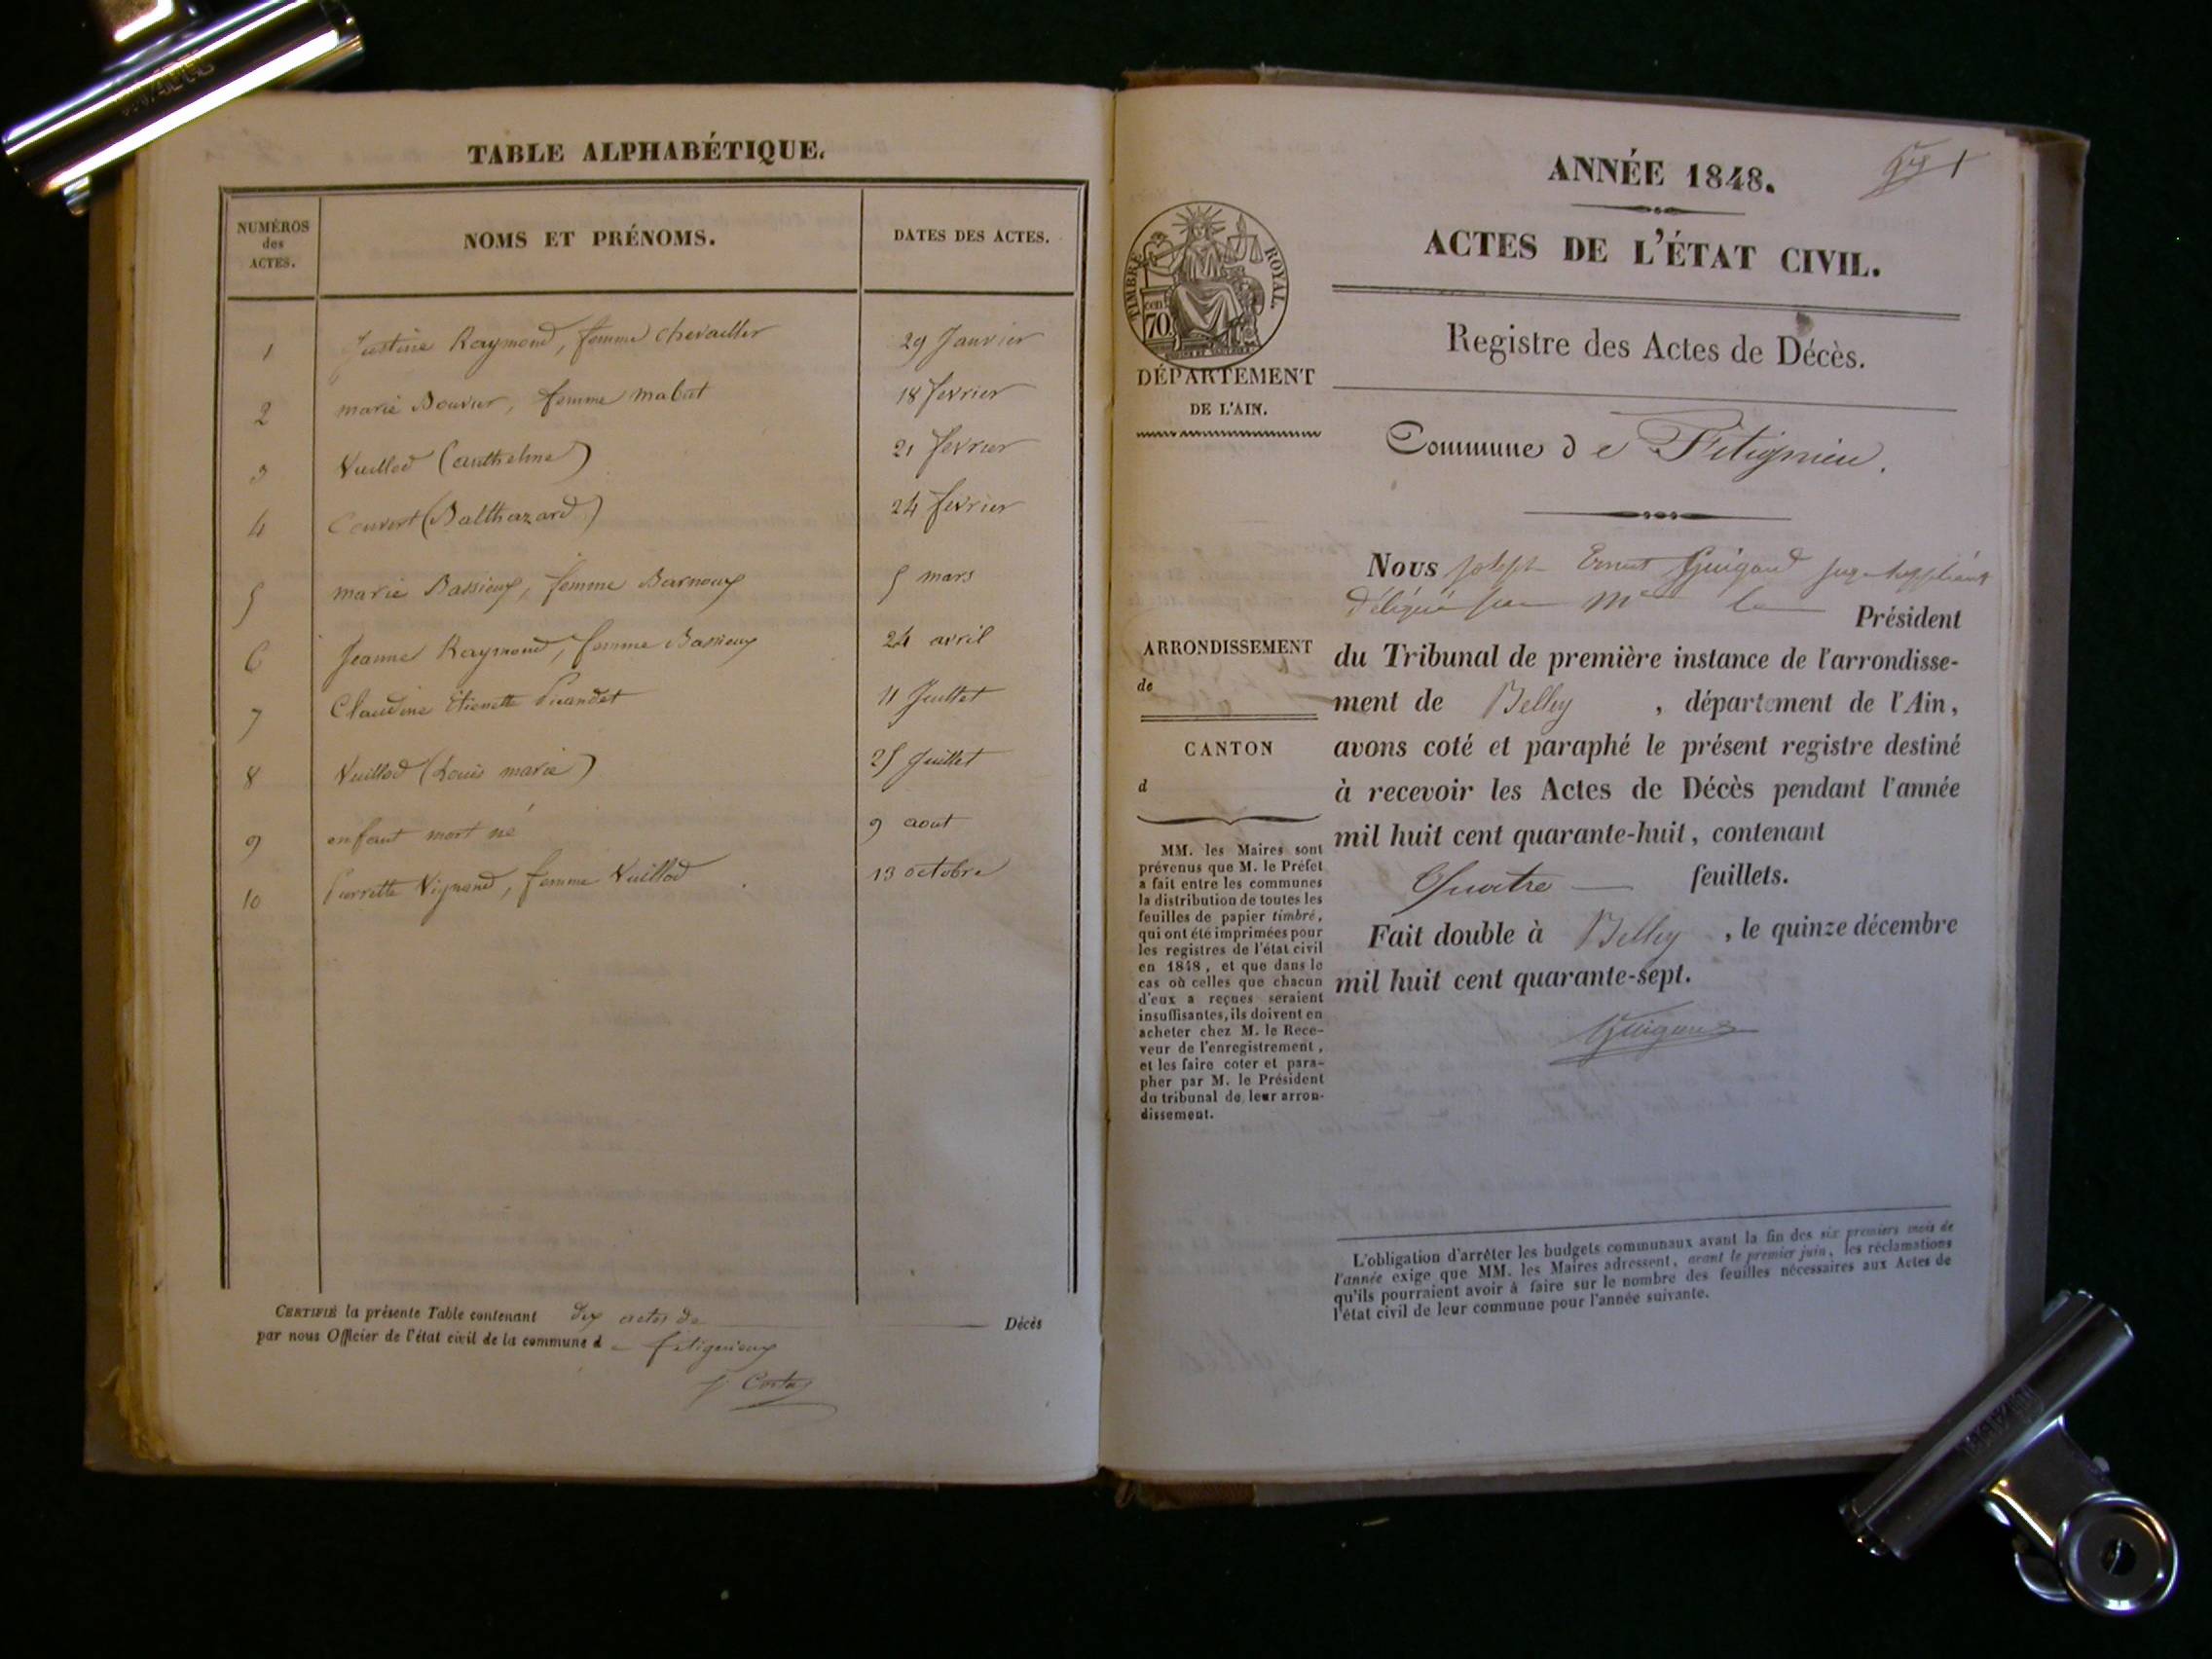 TABLE ALPHABÉTIQUE.
NUMÉROS des ACTES.
NOMS ET PRÉNOMS.
DATES DES ACTES.
1 Justine Raymond, femme Chevailler 29 Janvier
2 marie Bouvier, femme mabut 18 fevrier
3 Vuillod (anthelme) 21 fevrier
4 Couvert (Balthazard) 24 fevrier
5 marie Bassieux, femme Barnoux 5 mars
6 Jeanne Raymond, femme Bassieux 24 avril
7 Claudine Etienette 11 Juillet
8 Vuillod (Louis marie) 25 Juillet
9 enfant mort né 9 aout
10 Pierrette Vignand, femme Vuillod 13 octobre
CERTIFIÉ la présente Table contenant dix actes de Décès
par nous Officier de l'état civil de la commune de fitignieux
ANNÉE 1848.
1
ACTES DE L'ÉTAT CIVIL.
TIMBRE ROYAL
70
Registre des Actes de Décès.
DÉPARTEMENT
DE L'AIN.
Commune de Fitignieu.
Nous Joseph Ernest Guigard juge suppléant
délégué par Mr le Président
ARRONDISSEMENT
de
CANTON
d
du Tribunal de première instance de l'arrondisse-
ment de Belley, département de l'Ain,
avons coté et paraphé le présent registre destiné
à recevoir les Actes de Décès pendant l'année
mil huit cent quarante-huit, contenant
Quatre feuillets.
Fait double à Belley, le quinze décembre
mil huit cent quarante-sept.
MM. les Maires sont
prévenus que M. le Préfet
a fait entre les communes
la distribution de toutes les
feuilles de papier timbré,
qui ont été imprimées pour
les registres de l'état civil
en 1848, et que dans le
cas où celles que chacun
d'eux a reçues seraient
insuffisantes, ils doivent en
acheter chez M. le Rece-
veur de l'enregistrement,
et les faire coter et para-
pher par M. le Président
du tribunal de leur arron-
dissement.
L'obligation d'arrêter les budgets communaux avant la fin des six premiers mois de
l'année exige que MM. les Maires adressent, avant le premier juin, les réclamations
qu'ils pourraient avoir à faire sur le nombre des feuilles nécessaires aux Actes de
l'état civil de leur commune pour l'année suivante.